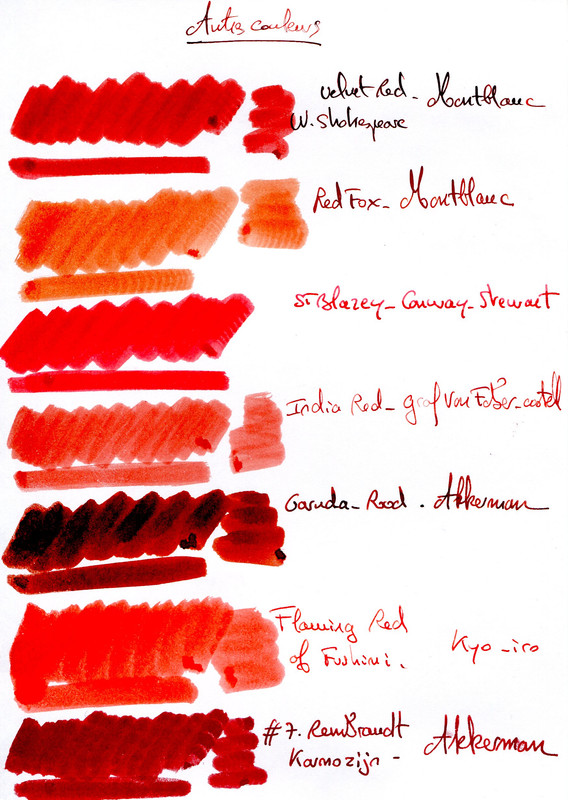 Autres couleurs
Velvet Red - Montblanc
W. Shakespeare
Red Fox - Montblanc
St Blazey - Conway - Stewart
India Red - graf Von Faber - castell
Garuda - Rood . Akkerman
Flaming Red
of Fushimi . Kyo - iro
#7. RemBrandt
Karmozijn - Akkerman